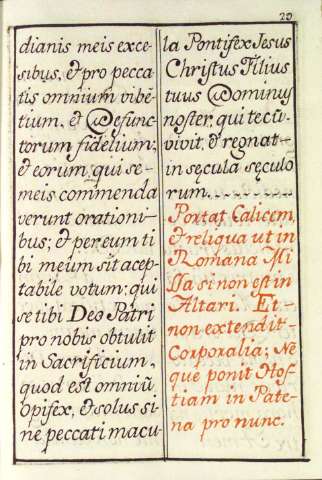 20
dianis meis exce-
sibus, & pro pecca
tis omnium vibē
tium, et Defunc
torum fidelium;
& eorum, qui se-
meis commenda
verunt orationi-
bus; & per eum ti
bi meum sit acep-
tabile votum; qui
se tibi Deo Patri
pro nobis obtulit
in Sacrificium,
quod est omniū
opifex, & solus si-
ne peccati macu-
la Pontifex Jesus
Christus Filius
tuus Dominus
noster, qui tecū
vivit, et regnat
in secula seculo
rum.
Portat Calicem,
& reliqua ut in
Romana Mi
ssa si non est in
Altari. Et
non extendit
Corporalia; Ne
que ponit Hos
tiam in Pate-
na pro nunc.